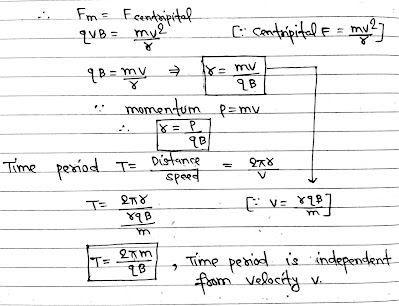 ∴ Fm = F centripital
qVB = mv²/r [∵ centripital F = mv²/r]
qB = mv/r ⇒ r = mv/qB
∵ momentum P = mv
∴ r = P/qB
Time period T = Distance/speed = 2πr/v
T = 2πr/(rqB/m) [∵ v = rqB/m]
T = 2πm/qB , Time period is independent
from velocity v.